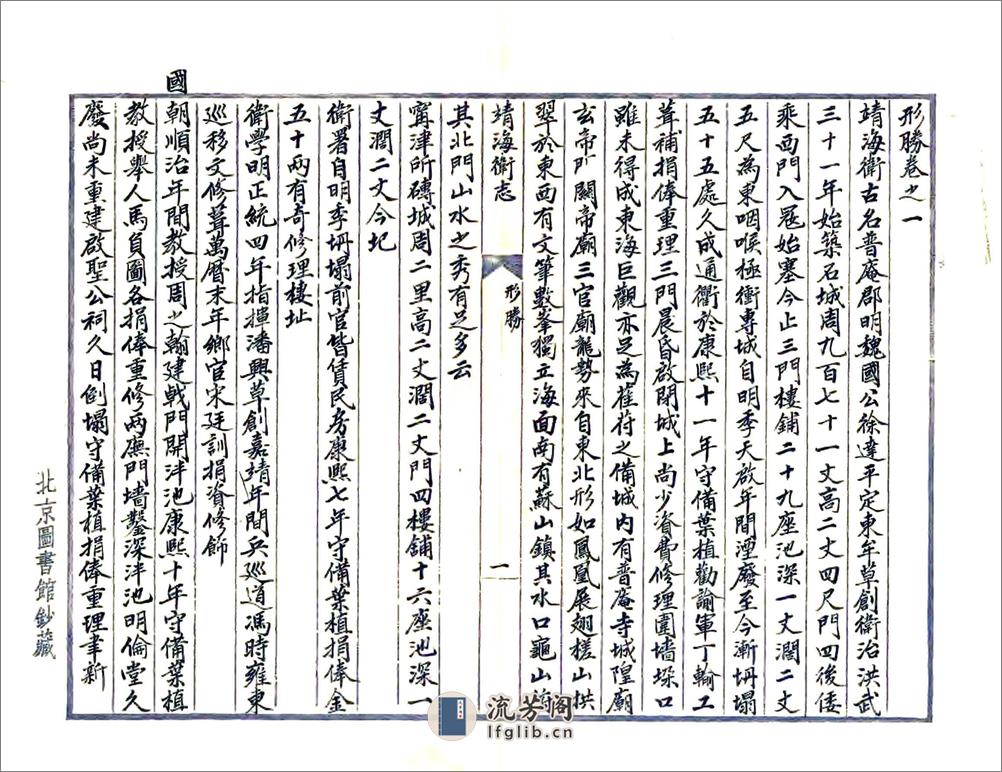 形勝卷之一
靖海衛古名普庵郡明魏國公徐達平定東牟草創衛治洪武
三十一年始築石城周九百七十一丈高二丈四尺門四後倭
乘西門入冦始塞今止三門樓鋪二十九座池深一丈濶二丈
五尺為東咽喉極衝專城自明季天啟年間湮廢至今漸坍塌
五十五處久成通衢於康熙十一年守備葉植勸諭軍丁輸工
葺補捐俸重理三門晨昏啟閉城上尚少資費修理圍墻垛口
雖未得成東海巨觀亦足為萑苻之備城內有普庵寺城隍廟
玄帝廟關帝廟三官廟龍勢來自東北形如鳳凰展翅槎山拱
翠於東西有文筆數峯獨立海面南有蘇山鎮其水口龜山
靖海衛志
形勝
一
其北門山水之秀有足多云
寗津所磚城周二里高二丈濶二丈門四樓鋪十六座池深一
丈濶二丈今圮
衛署自明季坍塌前官皆賃民房康熙七年守備葉植捐俸金
五十兩有奇修理樓址
衛學明正統四年指揮潘興草創嘉靖年間兵巡道馮時雍東
巡移文修葺萬曆末年鄉宦宋廷訓捐資修飾
國朝順治年間教授周之翰建戟門開泮池康熙十年守備葉植
教授舉人馬負圖各捐俸重修兩廡門墻鑿深泮池明倫堂久
廢尚未重建啟聖公祠久日創塌守備葉植捐俸重理聿新
北京圖書館鈔藏
流芳阁
lfglib.cn